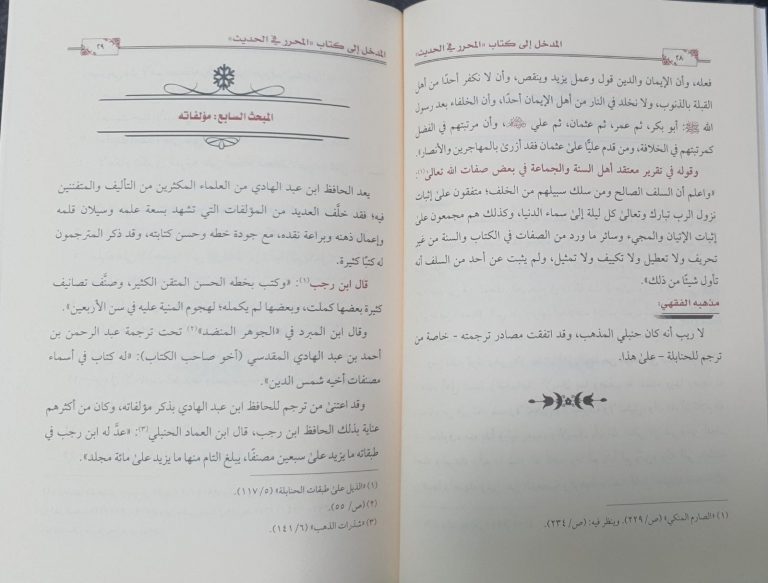 المدخل إلى كتاب «المحرر في الحديث»
٢٨
فعله، وأن الإيمان والدين قول وعمل يزيد وينقص، وأن لا نكفر أحدًا من أهل
القبلة بالذنوب، ولا نخلد في النار من أهل الإيمان أحدًا، وأن الخلفاء بعد رسول
الله ﷺ: أبو بكر، ثم عمر، ثم عثمان، ثم علي، وأن مرتبتهم في الفضل
كمرتبتهم في الخلافة، ومن قدم عليًّا على عثمان فقد أزرى بالمهاجرين والأنصار».
وقوله في تقرير معتقد أهل السنة والجماعة في بعض صفات الله تعالى(١):
«واعلم أن السلف الصالح ومن سلك سبيلهم من الخلف؛ متفقون على إثبات
نزول الرب تبارك وتعالى كل ليلة إلى سماء الدنيا، وكذلك هم مجمعون على
إثبات الإتيان والمجيء وسائر ما ورد من الصفات في الكتاب والسنة من غير
تحريف ولا تعطيل ولا تكييف ولا تمثيل، ولم يثبت عن أحد من السلف أنه
تأول شيئًا من ذلك».
مذهبه الفقهي:
لا ريب أنه كان حنبلي المذهب، وقد اتفقت مصادر ترجمته - خاصة من
ترجم للحنابلة - على هذا.
(١) «الصارم المنكي» (ص/ ٢٢٩). وينظر فيه: (ص/ ٢٣٤).
المدخل إلى كتاب «المحرر في الحديث»
٢٩
المبحث السابع: مؤلفاته
يعد الحافظ ابن عبد الهادي من العلماء المكثرين من التأليف والمتفننين
فيه؛ فقد خلَّف العديد من المؤلفات التي تشهد بسعة علمه وسيلان قلمه
وإعمال ذهنه وبراعة نقده، مع جودة خطه وحسن كتابته، وقد ذكر المترجمون
له كتبًا كثيرة.
قال ابن رجب(١): «وكتب بخطه الحسن المتقن الكثير، وصنَّف تصانيف
كثيرة بعضها كملت، وبعضها لم يكمله؛ لهجوم المنية عليه في سن الأربعين».
وقال ابن المبرد في «الجوهر المنضد»(٢) تحت ترجمة عبد الرحمن بن
أحمد بن عبد الهادي المقدسي (أخو صاحب الكتاب): «له كتاب في أسماء
مصنفات أخيه شمس الدين».
وقد اعتنى من ترجم للحافظ ابن عبد الهادي بذكر مؤلفاته، وكان من أكثرهم
عناية بذلك الحافظ ابن رجب، قال ابن العماد الحنبلي(٣): «عدَّ له ابن رجب في
طبقاته ما يزيد على سبعين مصنفًا، يبلغ التام منها ما يزيد على مائة مجلد».
(١) «الذيل على طبقات الحنابلة» (٥/ ١١٧).
(٢) (ص/ ٥٥).
(٣) «شذرات الذهب» (٦/ ١٤١).